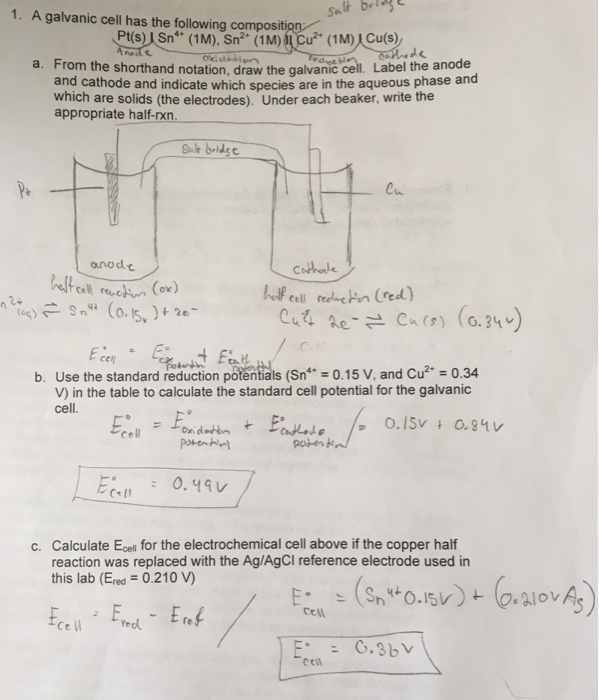 salt bridge
1. A galvanic cell has the following composition:
Pt(s) | Sn⁴⁺ (1M), Sn²⁺ (1M) || Cu²⁺ (1M) | Cu(s)
Anode oxidation reduction cathode
a. From the shorthand notation, draw the galvanic cell. Label the anode
and cathode and indicate which species are in the aqueous phase and
which are solids (the electrodes). Under each beaker, write the
appropriate half-rxn.
salt bridge
Pt
Cu
anode
cathode
half cell reaction (ox)
half cell reduction (red)
n²⁺(aq) ⇌ Sn⁴⁺ (0.15v) + 2e⁻
Cu²⁺ 2e⁻ ⇌ Cu(s) (0.34v)
E°cell = E°ox potential + E°cath potential /
b. Use the standard reduction potentials (Sn⁴⁺ = 0.15 V, and Cu²⁺ = 0.34
V) in the table to calculate the standard cell potential for the galvanic
cell.
E°cell = E°oxidation potential + E°cathode potential / = 0.15v + 0.34v
E°cell = 0.49v
c. Calculate Ecell for the electrochemical cell above if the copper half
reaction was replaced with the Ag/AgCl reference electrode used in
this lab (Ered = 0.210 V)
Ecell = Ered - Eref /
E°cell = (Sn⁴⁺ 0.15v) + (0.210v Ag)
E°cell = 0.36v